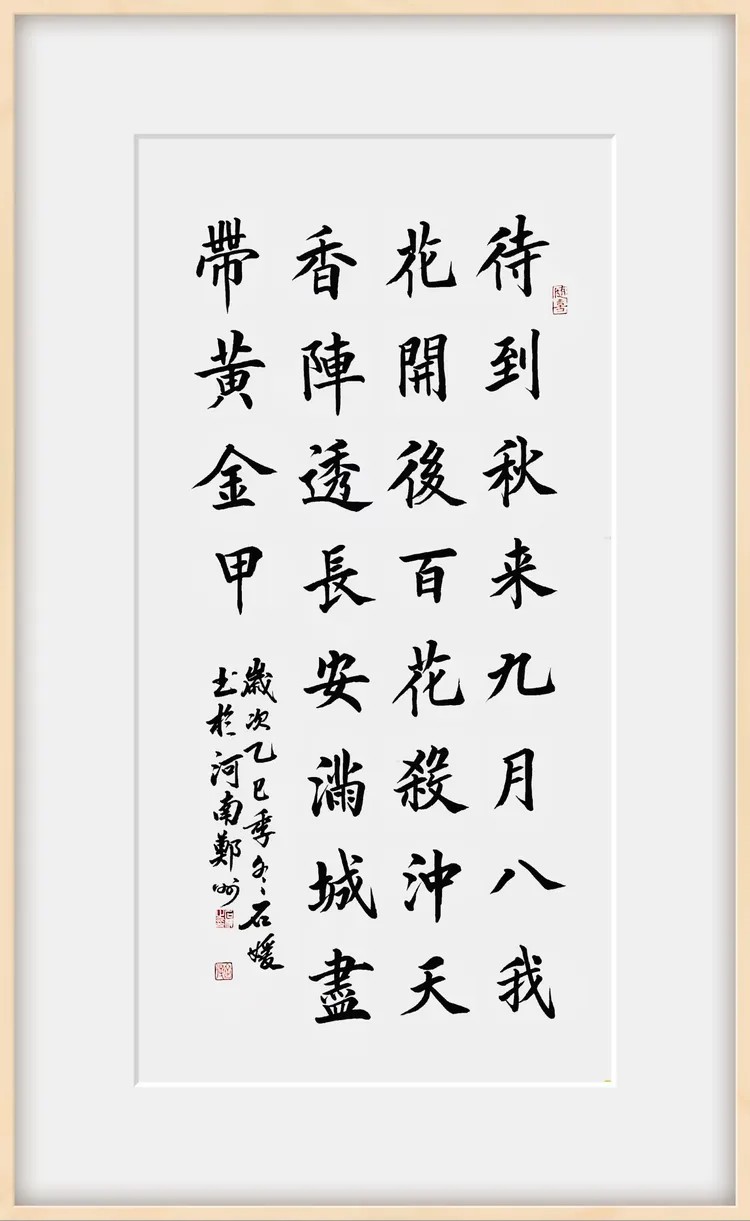 待到秋来九月八我
花開後百花殺沖天
香陣透長安滿城盡
帶黃金甲
歲次乙巳季冬石媛
书於河南鄭州